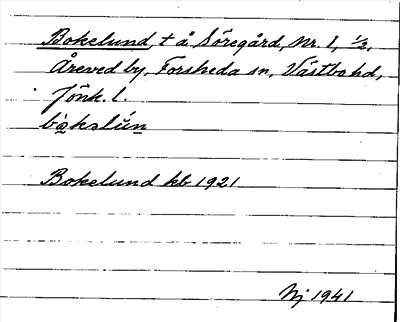 Bokelund, t å Söregård, Nr. 1, 1/2,
Åreved by, Forsheda sn, Västbo hd,
Jönk. l.
bo̱kɘlún
Bokelund kb 1921
Nj 1941